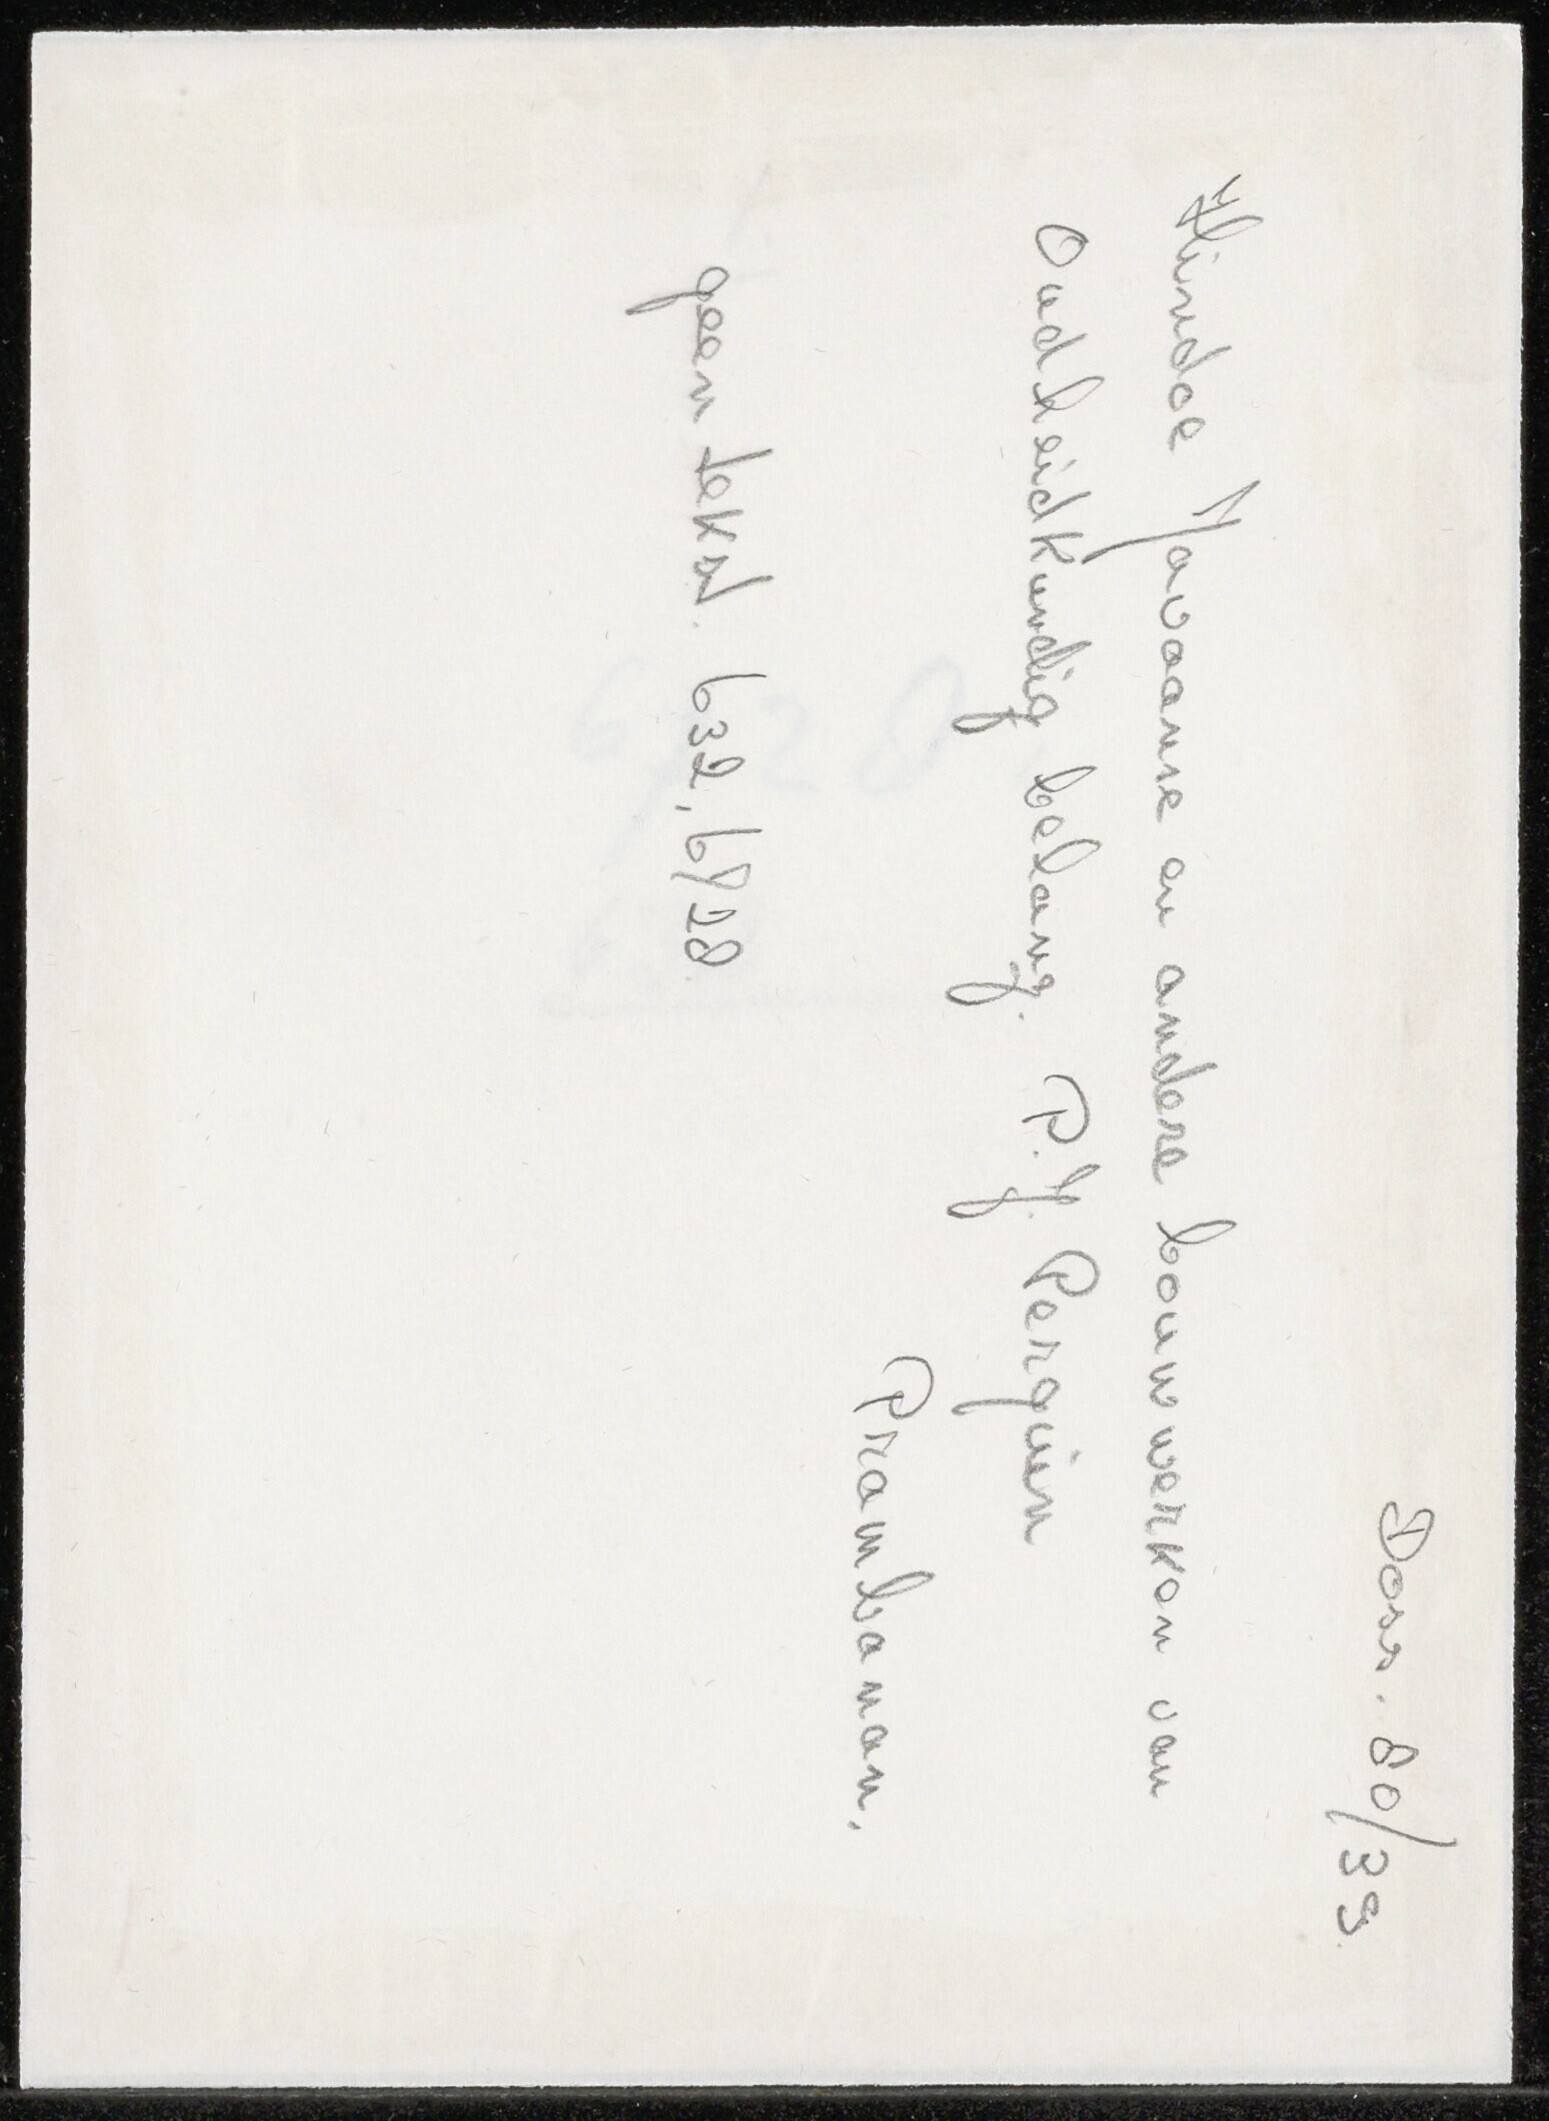 Doss. 80/39.
Hindoe Javaanse en andere bouwwerken van
Oudheidkundig belang. P.J. Perquin
Prambanan.
geen tekst. 632, 6/28